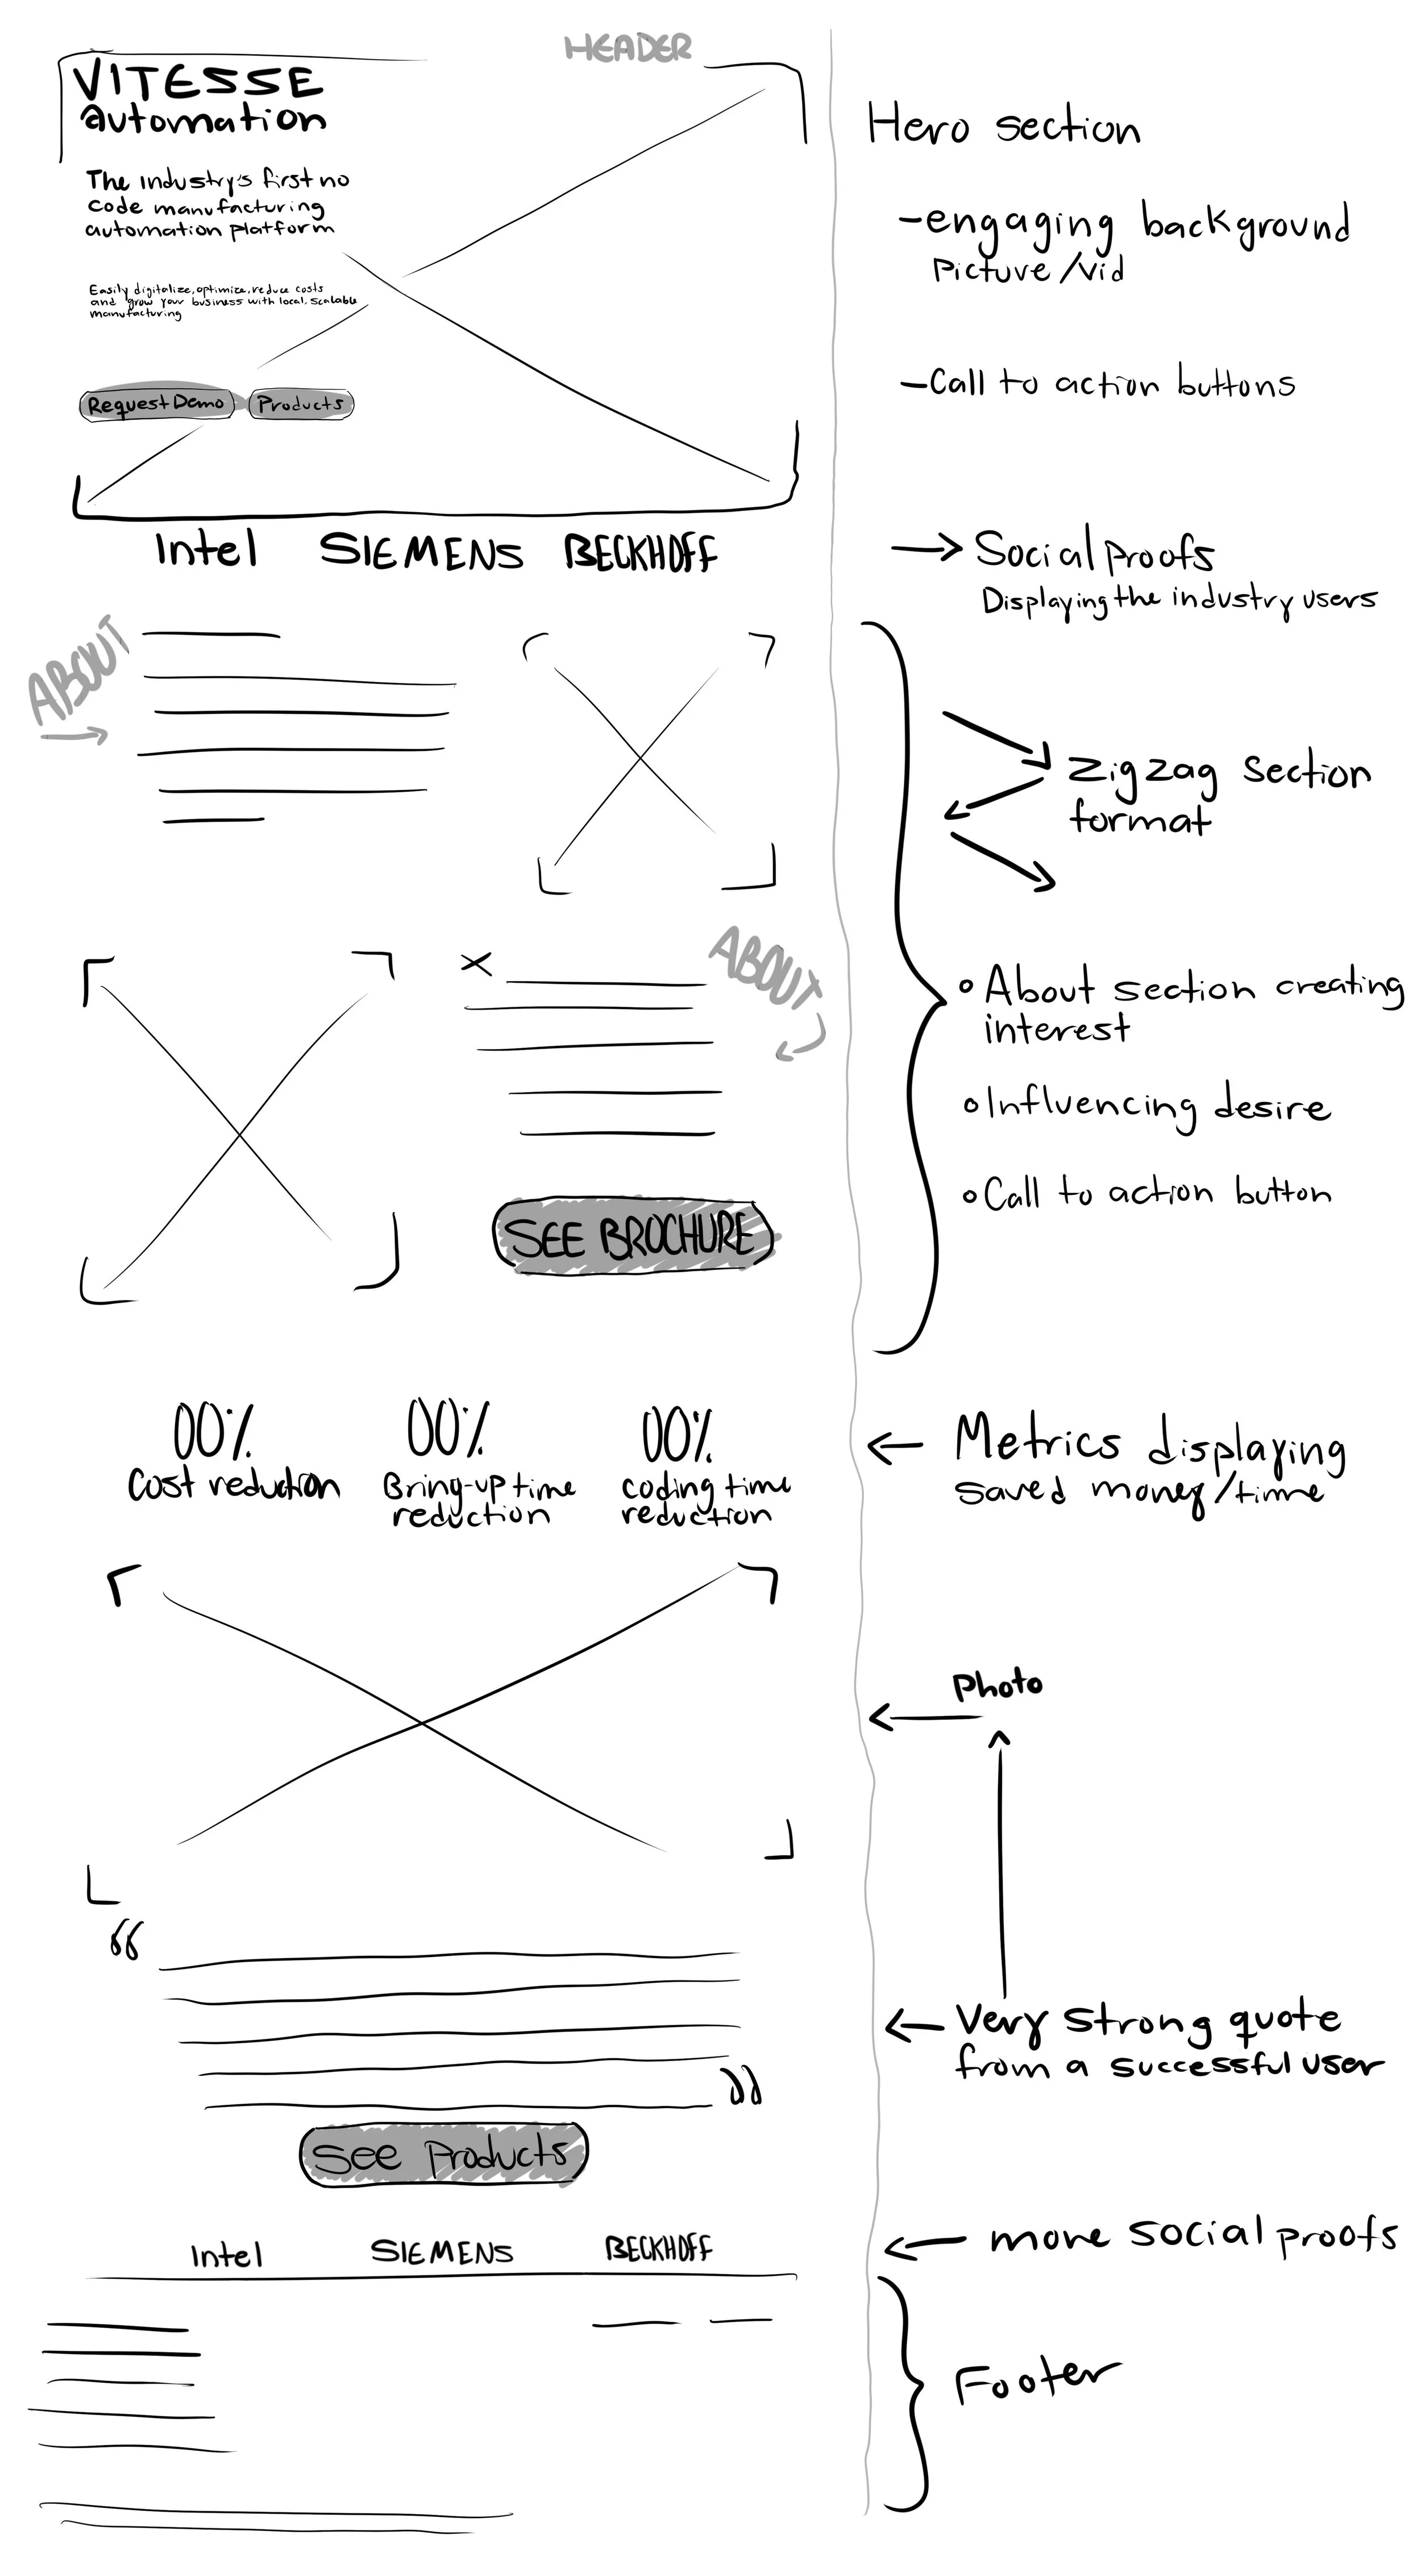 HEADER
VITESSE
automation
The industry's first no
code manufacturing
automation platform
Easily digitalize, optimize, reduce costs
and grow your business with local, scalable
manufacturing
Request Demo
Products
Hero section
-engaging background
Picture/vid
-Call to action buttons
Intel SIEMENS BECKHOFF
Social proofs
Displaying the industry users
ABOUT
Zigzag section
format
ABOUT
About section creating
interest
Influencing desire
Call to action button
SEE BROCHURE
00% 00% 00%
Cost reduction
Bring-up time
reduction
coding time
reduction
Metrics displaying
saved money/time
Photo
“
”
Very strong quote
from a successful user
See Products
Intel SIEMENS BECKHOFF
more social proofs
Footer